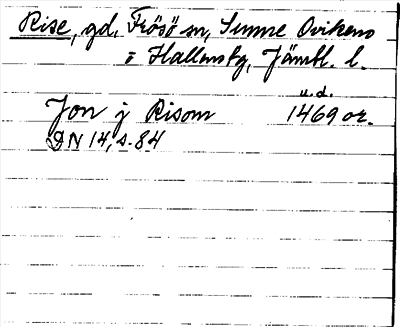 Rise, gd, Frösö sn, Sunne Ovikens
o Hallens tg, Jämtl. l.
u.d.
Jon j Risom 1469 or.
DN 14, s. 84